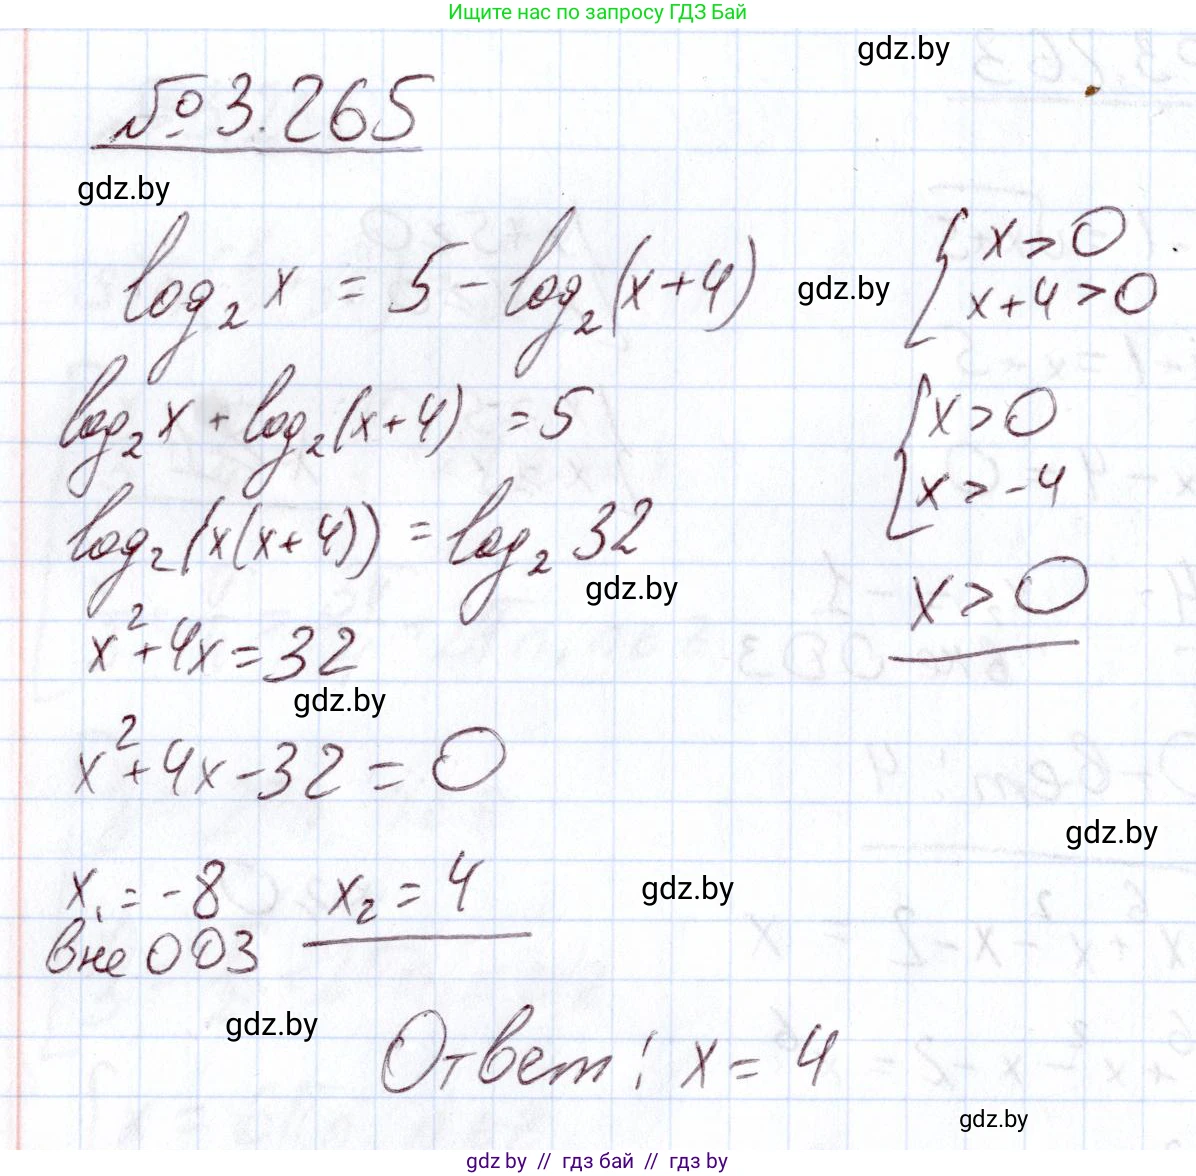 Ищите нас по запросу ГДЗ Бай
gdz.by
№ 3.265
gdz.by
log₂ x = 5 - log₂(x+4)
gdz.by
{ x > 0
x+4 > 0
log₂ x + log₂(x+4) = 5
{ x > 0
x > -4
log₂(x(x+4)) = log₂ 32
gdz.by
x > 0
x² + 4x = 32
gdz.by
x² + 4x - 32 = 0
gdz.by
x₁ = -8 x₂ = 4
gdz.by
вне ОДЗ
gdz.by
Ответ: x = 4
gdz.by
gdz by // гдз бай // гдз by